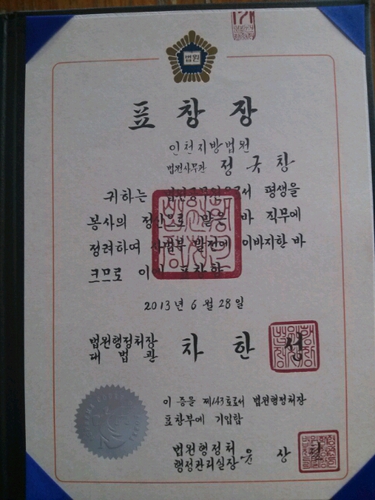 법원
표창장
인천지방법원
법원사무관 정국창
귀하는 평생을
봉사의 정신으로 맡은 바 직무에
정려하여 사법부 발전에 이바지한 바
크므로 이에 표창함
2013년 6월 28일
법원행정처장
대법관 차한성
이 증을 제1143호로서 법원행정처장
표창부에 기입함
법원행정처
행정관리실장 윤상